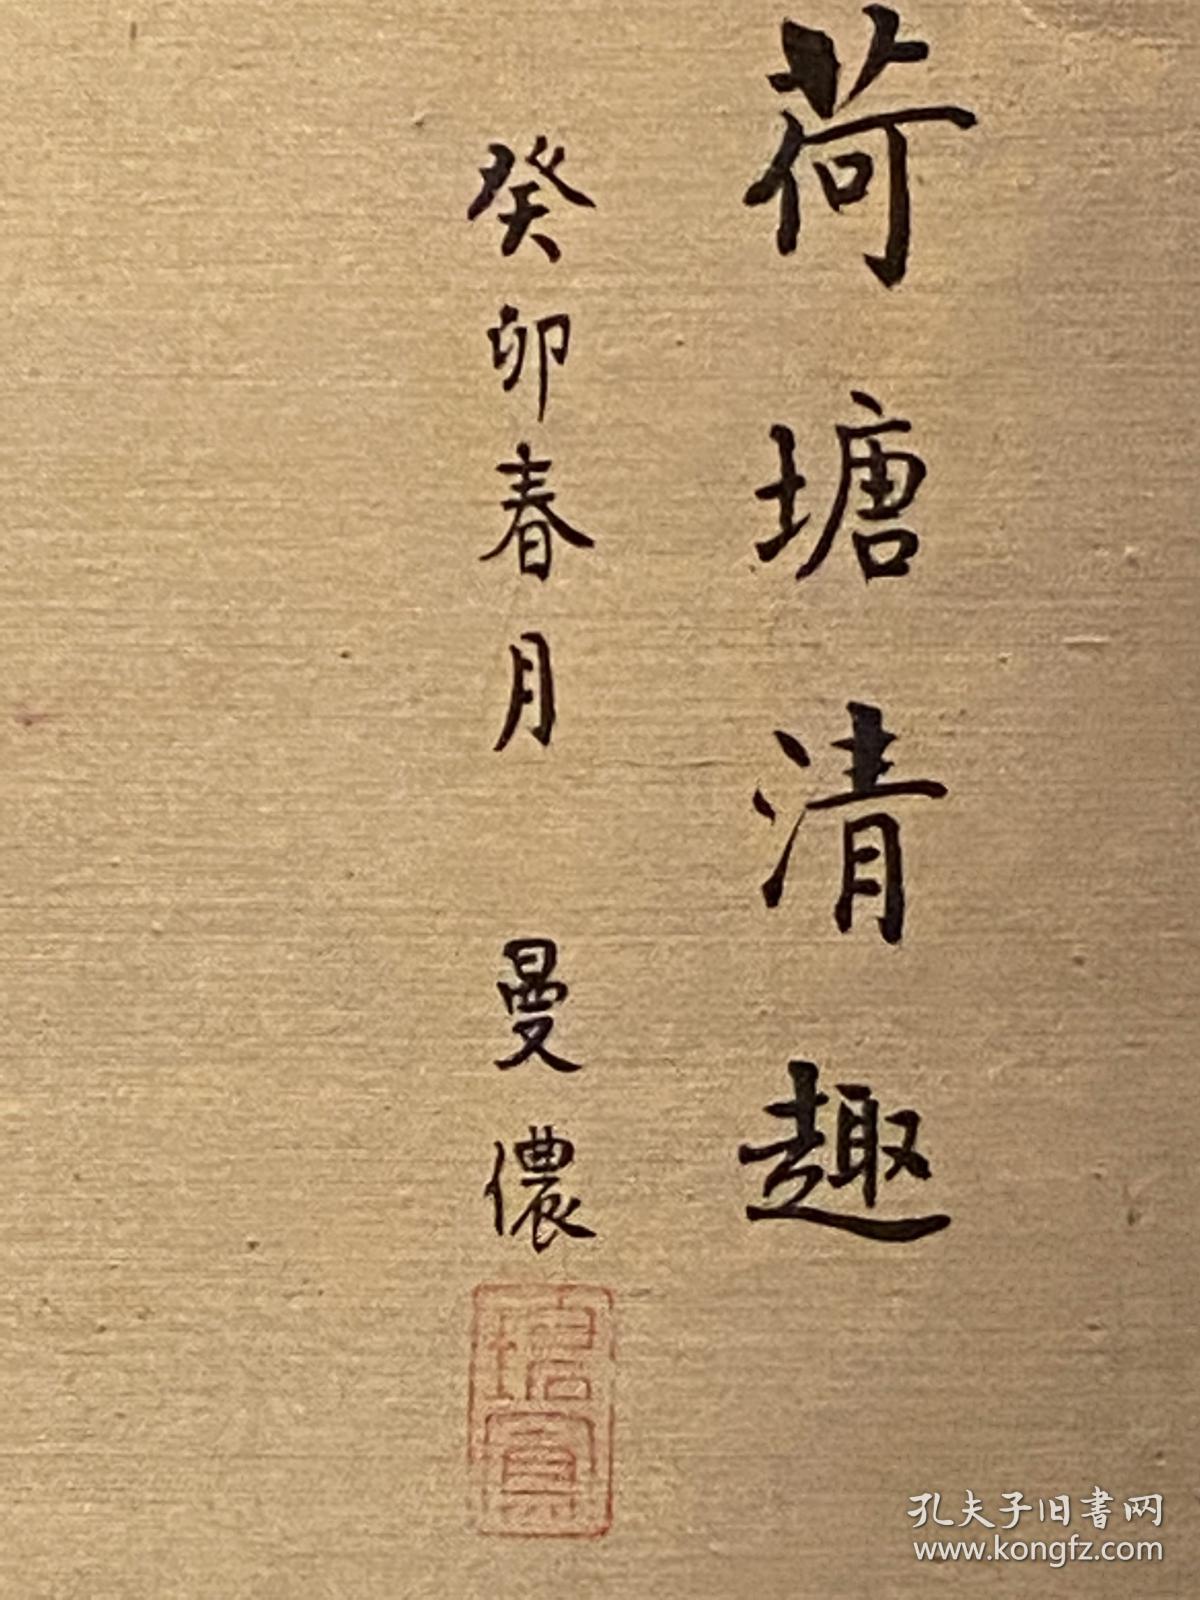 荷塘清趣
癸卯春月 曼儂
孔夫子旧書网
www.kongfz.com